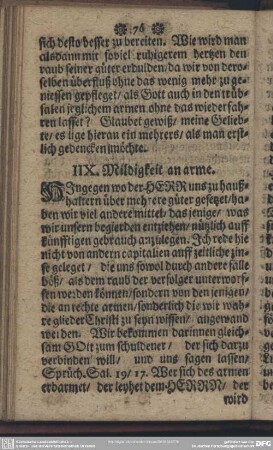 76
sich desto besser zu bereiten. Wie wird man
alsdann mit soviel ruhigerem hertzen den
raub seiner güter erdulden / da wir von dero-
selben überfluß ohne das wenig mehr zu ge-
niessen gepfleget / als Gott auch in den trüb-
salen irgleichem armen ohne das wiederfah-
ren lasset? Glaubet gewiß / meine Gelieb-
te / es lige hieran ein mehrers / als man erst-
lich gedencken möchte.
IIX. Mildigkeit an arme.
HIngegen wo der HERR uns zu hauß-
haltern über mehrere güter gesetzt / ha-
ben wir viel andere mittel / das jenige / was
wir unsern begierden entziehen / nützlich auff
künfftigen gebrauch anzulegen. Ich rede hie
nicht von andern capitalien auff zeitliche zin-
se geleget / die uns sowol durch andere fälle
böß / als dem raub der verfolger unterworf-
fen werden können / sondern von den jenigen /
die an rechte armen / sonderlich die wir wah-
re glieder Christi zu seyn wissen / angewand
werden. Wir bekommen darinnen gleich-
sam GOtt zum schuldener / der sich darzu
verbinden will / und uns sagen lassen /
Sprüch. Sal. 19 / 17. Wer sich des armen
erbarmet / der leyhet dem HERRN / der
wird